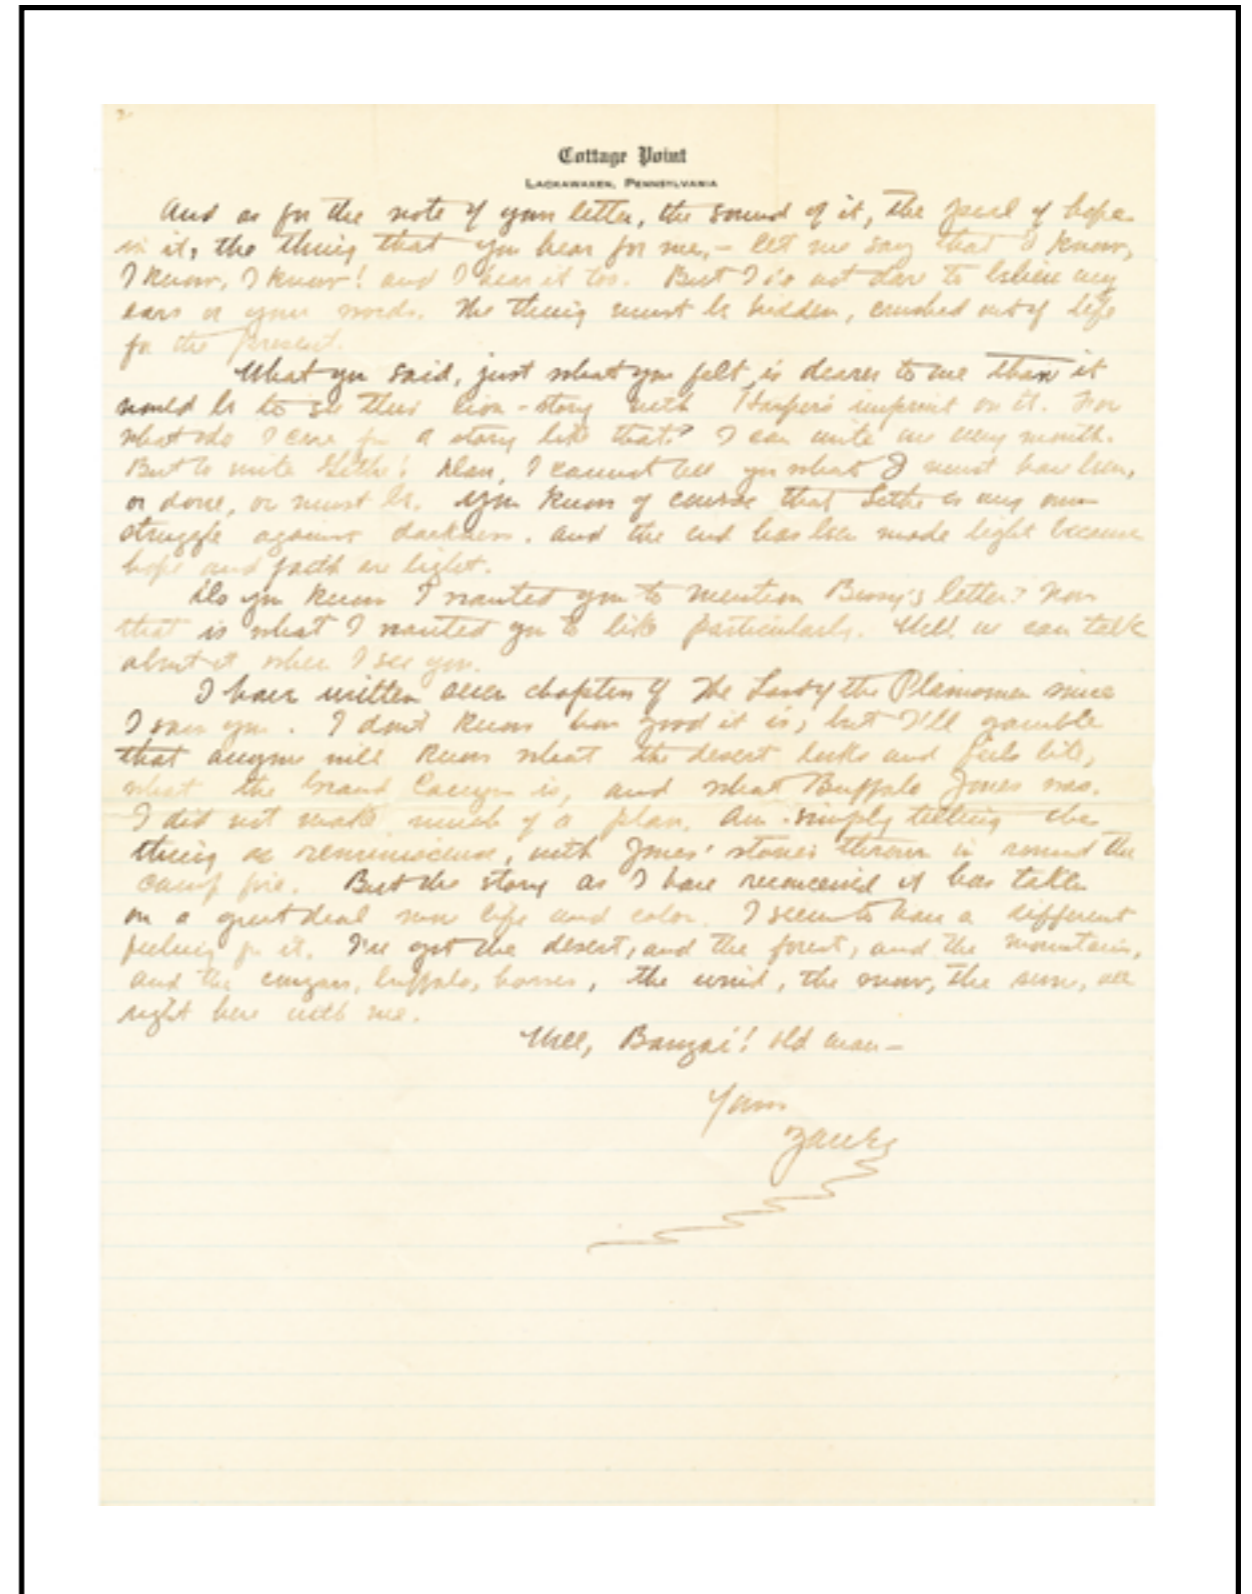 2
Cottage Point
LACKAWAXEN, PENNSYLVANIA
And as for the note of your letter, the sound of it, the peal of hope
in it, the thing that you hear for me, – let me say that I know,
I know, I know! and I hear it too. But I do not dare to believe my
ears or your words. The thing must be hidden, crushed out of life
for the present.
What you said, just what you felt is dearer to me than it
would be to see this lion-story with Harper's imprint on it. For
what do I care for a story like that? I can write one every month.
But to write Lethe! Dan, I cannot tell you what I must have been,
or done, or must be. You know of course that Lethe is my own
struggle against darkness. and the end has been made light because
hope and faith are light.
Do you know I wanted you to mention letter? Now
that is what I wanted you to like particularly. Well we can talk
about it when I see you.
I have written seven chapters of The Last of the Plainsmen since
I saw you. I don't know how good it is, but I'll gamble
that anyone will know what the desert looks and feels like,
what the Grand Canyon is, and what Buffalo Jones was.
I did not make much of a plan. Am simply telling the
thing as reminiscence, with Jones' stories thrown in around the
camp fire. But the story as I have reconceived it has taken
on a great deal more life and color. I seem to have a different
feeling for it. I've got the desert, and the forest, and the mountains,
and the cougars, buffalo, horses, the wind, the snow, the sun, all
right here with me.
Well, Banzai! old man –
Yours